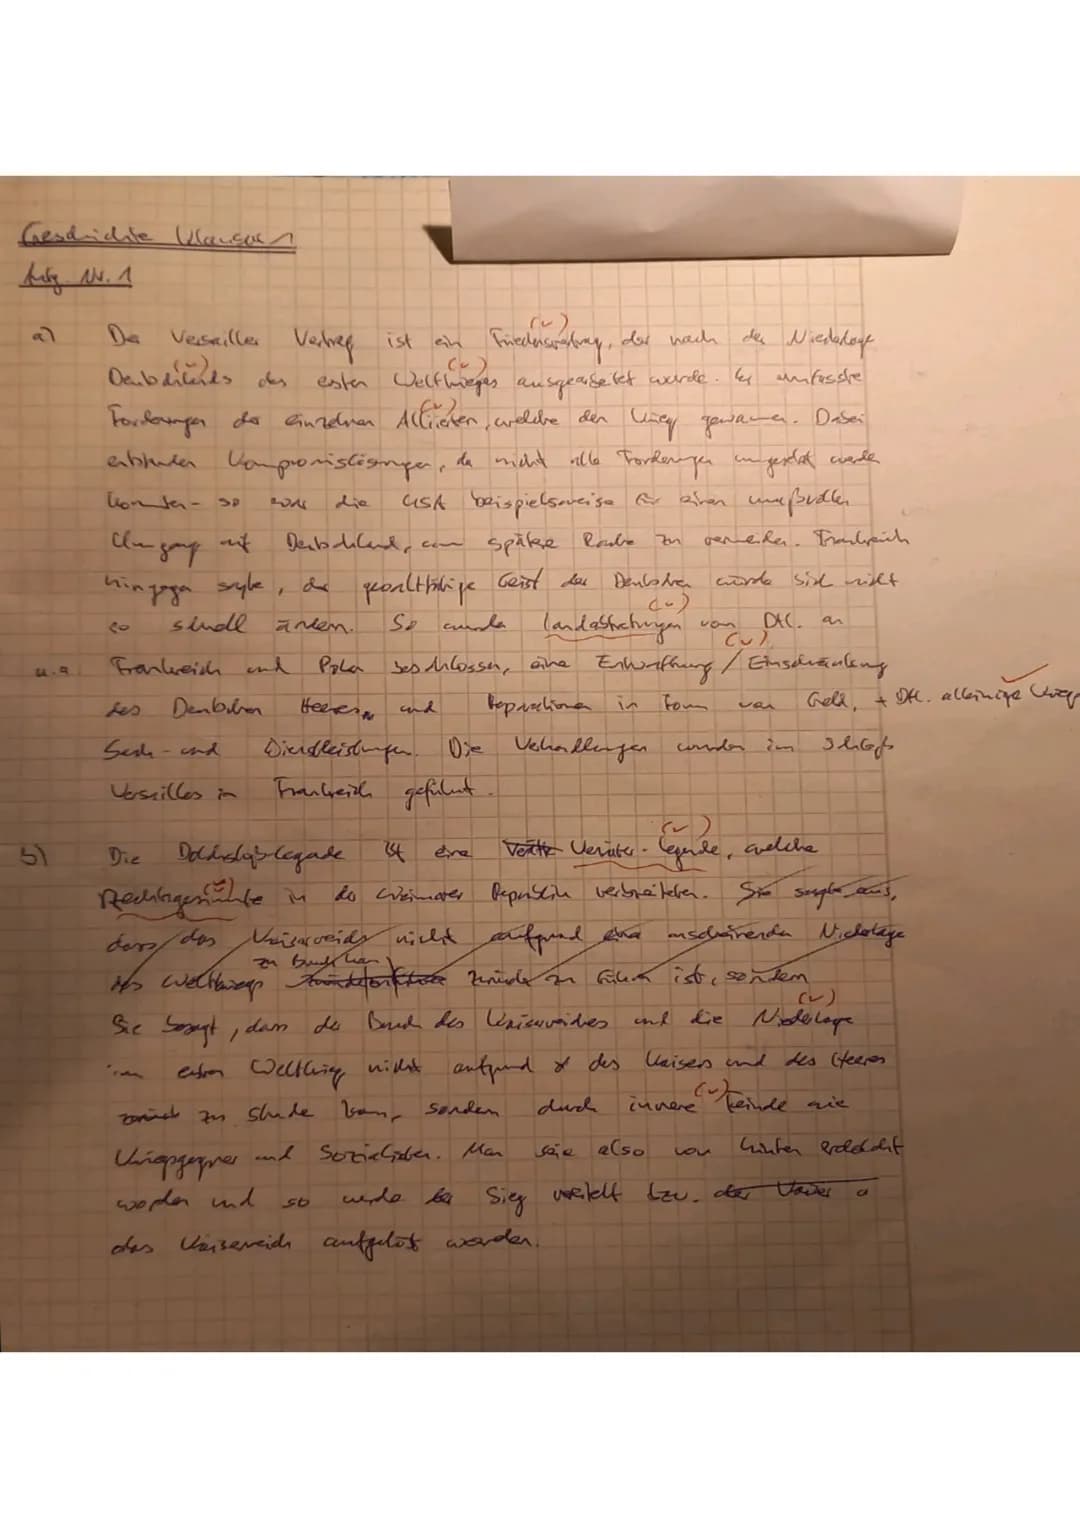 Geschichte Klausur
Aufg. Nr. 1
a) Der Versailler Vertrag ist ein Friedensvertrag, der nach der Niederlage
Deutschlands des ersten Weltkrieges ausgearbeitet wurde. Er umfasste
Forderungen der einzelnen Alliierten, welche den Krieg gewannen. Dabei
entstanden Kompromislösungen, da nicht alle Forderungen umgesetzt werden
konnten - so war die USA beispielsweise für einen
Umgang mit Deutschland, um spätere Rache zu vermeiden. Frankreich
hingegen sagte, der gewalttätige Geist der Deutschen würde sich nicht
so schnell ändern. So wurde Landabtretungen von Dtl. an
u.a. Frankreich und Polen beschlossen, eine Entwaffnung / Einschränkung
des Deutschen Heeres, und Reparationen in Form von Geld, + Dtl. alleinige
Sach- und Dienstleistungen. Die Verhandlungen wurden im Schloss
Versailles in Frankreich geführt.
b) Die Dolchstoßlegende ist eine Verräter-Legende, welche
Rechtsgesinnte in der Weimarer Republik verbreiteten. Sie sagte aus,
dass das Kaiserreich nicht aufgrund einer anscheinenden Niederlage
des Weltkriegs zu Bruch kam zurück zu führen ist, sondern
Sie besagt, dass der Bruch des Kaiserreiches und die Niederlage
im ersten Weltkrieg nicht aufgrund des Kaisers und des Heeres
zu Stande kam, sondern durch innere Feinde wie
Kriegsgegner und Sozialisten. Man sei also von hinten erdolcht
worden und so wurde der Sieg vereitelt bzw.
das Kaiserreich aufgelöst worden.